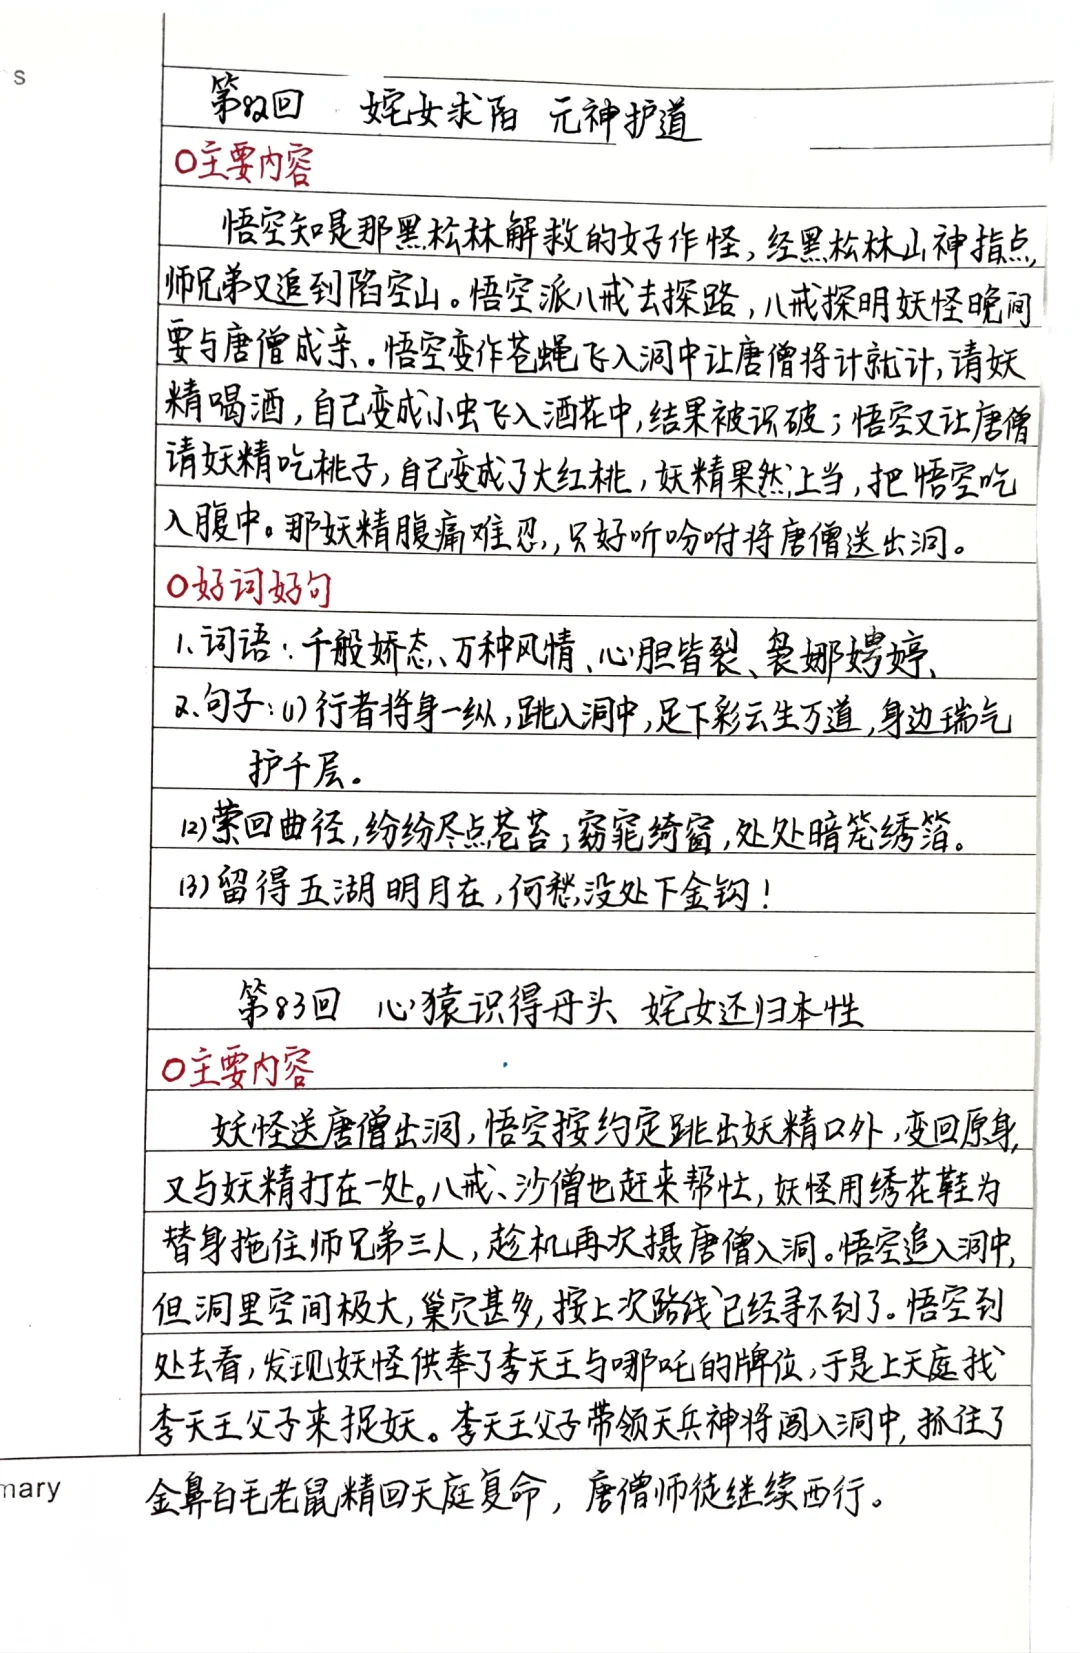 s
第82回 姹女求阳 元神护道
○主要内容
悟空知是那黑松林解救的女子作怪，经黑松林山神指点，
师兄弟又追到陷空山。悟空派八戒去探路，八戒探明妖怪晚间
要与唐僧成亲。悟空变作苍蝇飞入洞中让唐僧将计就计，请妖
精喝酒，自己变成小虫飞入酒花中，结果被识破；悟空又让唐僧
请妖精吃桃子，自己变成了大红桃，妖精果然上当，把悟空吃
入腹中。那妖精腹痛难忍，只好听吩咐将唐僧送出洞。
○好词好句
1、词语：千般娇态、万种风情、心胆皆裂、袅娜娉婷、
2、句子：(1)行者将身一纵，跳入洞中，足下彩云生万道，身边瑞气
护千层。
(2)萦回曲径，纷纷尽点苍苔；窈窕绮窗，处处暗笼绣箔。
(3)留得五湖明月在，何愁没处下金钩！
第83回 心猿识得丹头 姹女还归本性
○主要内容
妖怪送唐僧出洞，悟空按约定跳出妖精口外，变回原身，
又与妖精打在一处。八戒、沙僧也赶来帮忙，妖怪用绣花鞋为
替身拖住师兄弟三人，趁机再次摄唐僧入洞。悟空追入洞中，
但洞里空间极大，巢穴甚多，按上次路线已经寻不到了。悟空到
处去看，发现妖怪供奉了李天王与哪吒的牌位，于是上天庭找
李天王父子来捉妖。李天王父子带领天兵神将闯入洞中，抓住了
mary
金鼻白毛老鼠精回天庭复命，唐僧师徒继续西行。